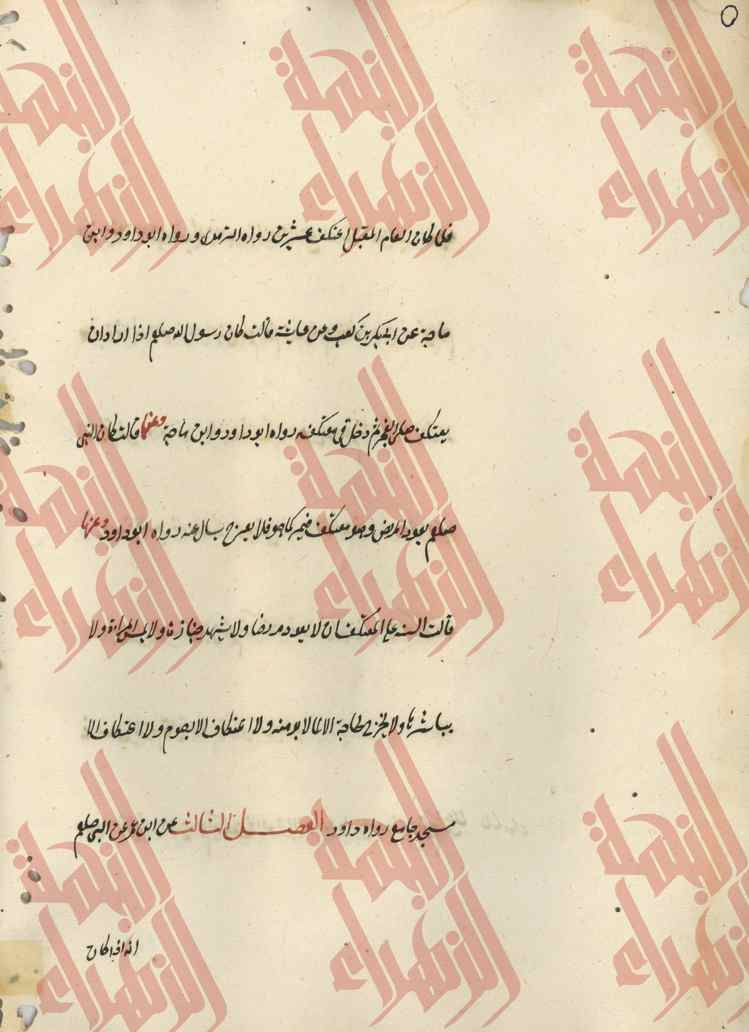 فلما كان العام المقبل اعتكف عشرين رواه الترمذى ورواه ابو داود وابن
ماجة عن ابى بن كعب وعن عايشة قالت كان رسول الله صلعم اذا اراد ان
يعتكف صلى الفجر ثم دخل فى معتكفه رواه ابو داود وابن ماجة وعنها قالت كان النبى
صلعم يعود المريض وهو معتكف فيمر كما هو فلا يعرج يسال عنه رواه ابو داود وعنها
قالت السنة على المعتكف ان لا يعود مريضا ولا يشهد جنازة ولا يمس المراة ولا
يباشرها ولا يخرج لحاجة الا لما لا بد منه ولا اعتكاف الا بصوم ولا اعتكاف الا
مسجد جامع رواه داود الفصل الثالث عن ابن عمر عن النبى صلعم
انه اذا كان
النجمة
الزهراء